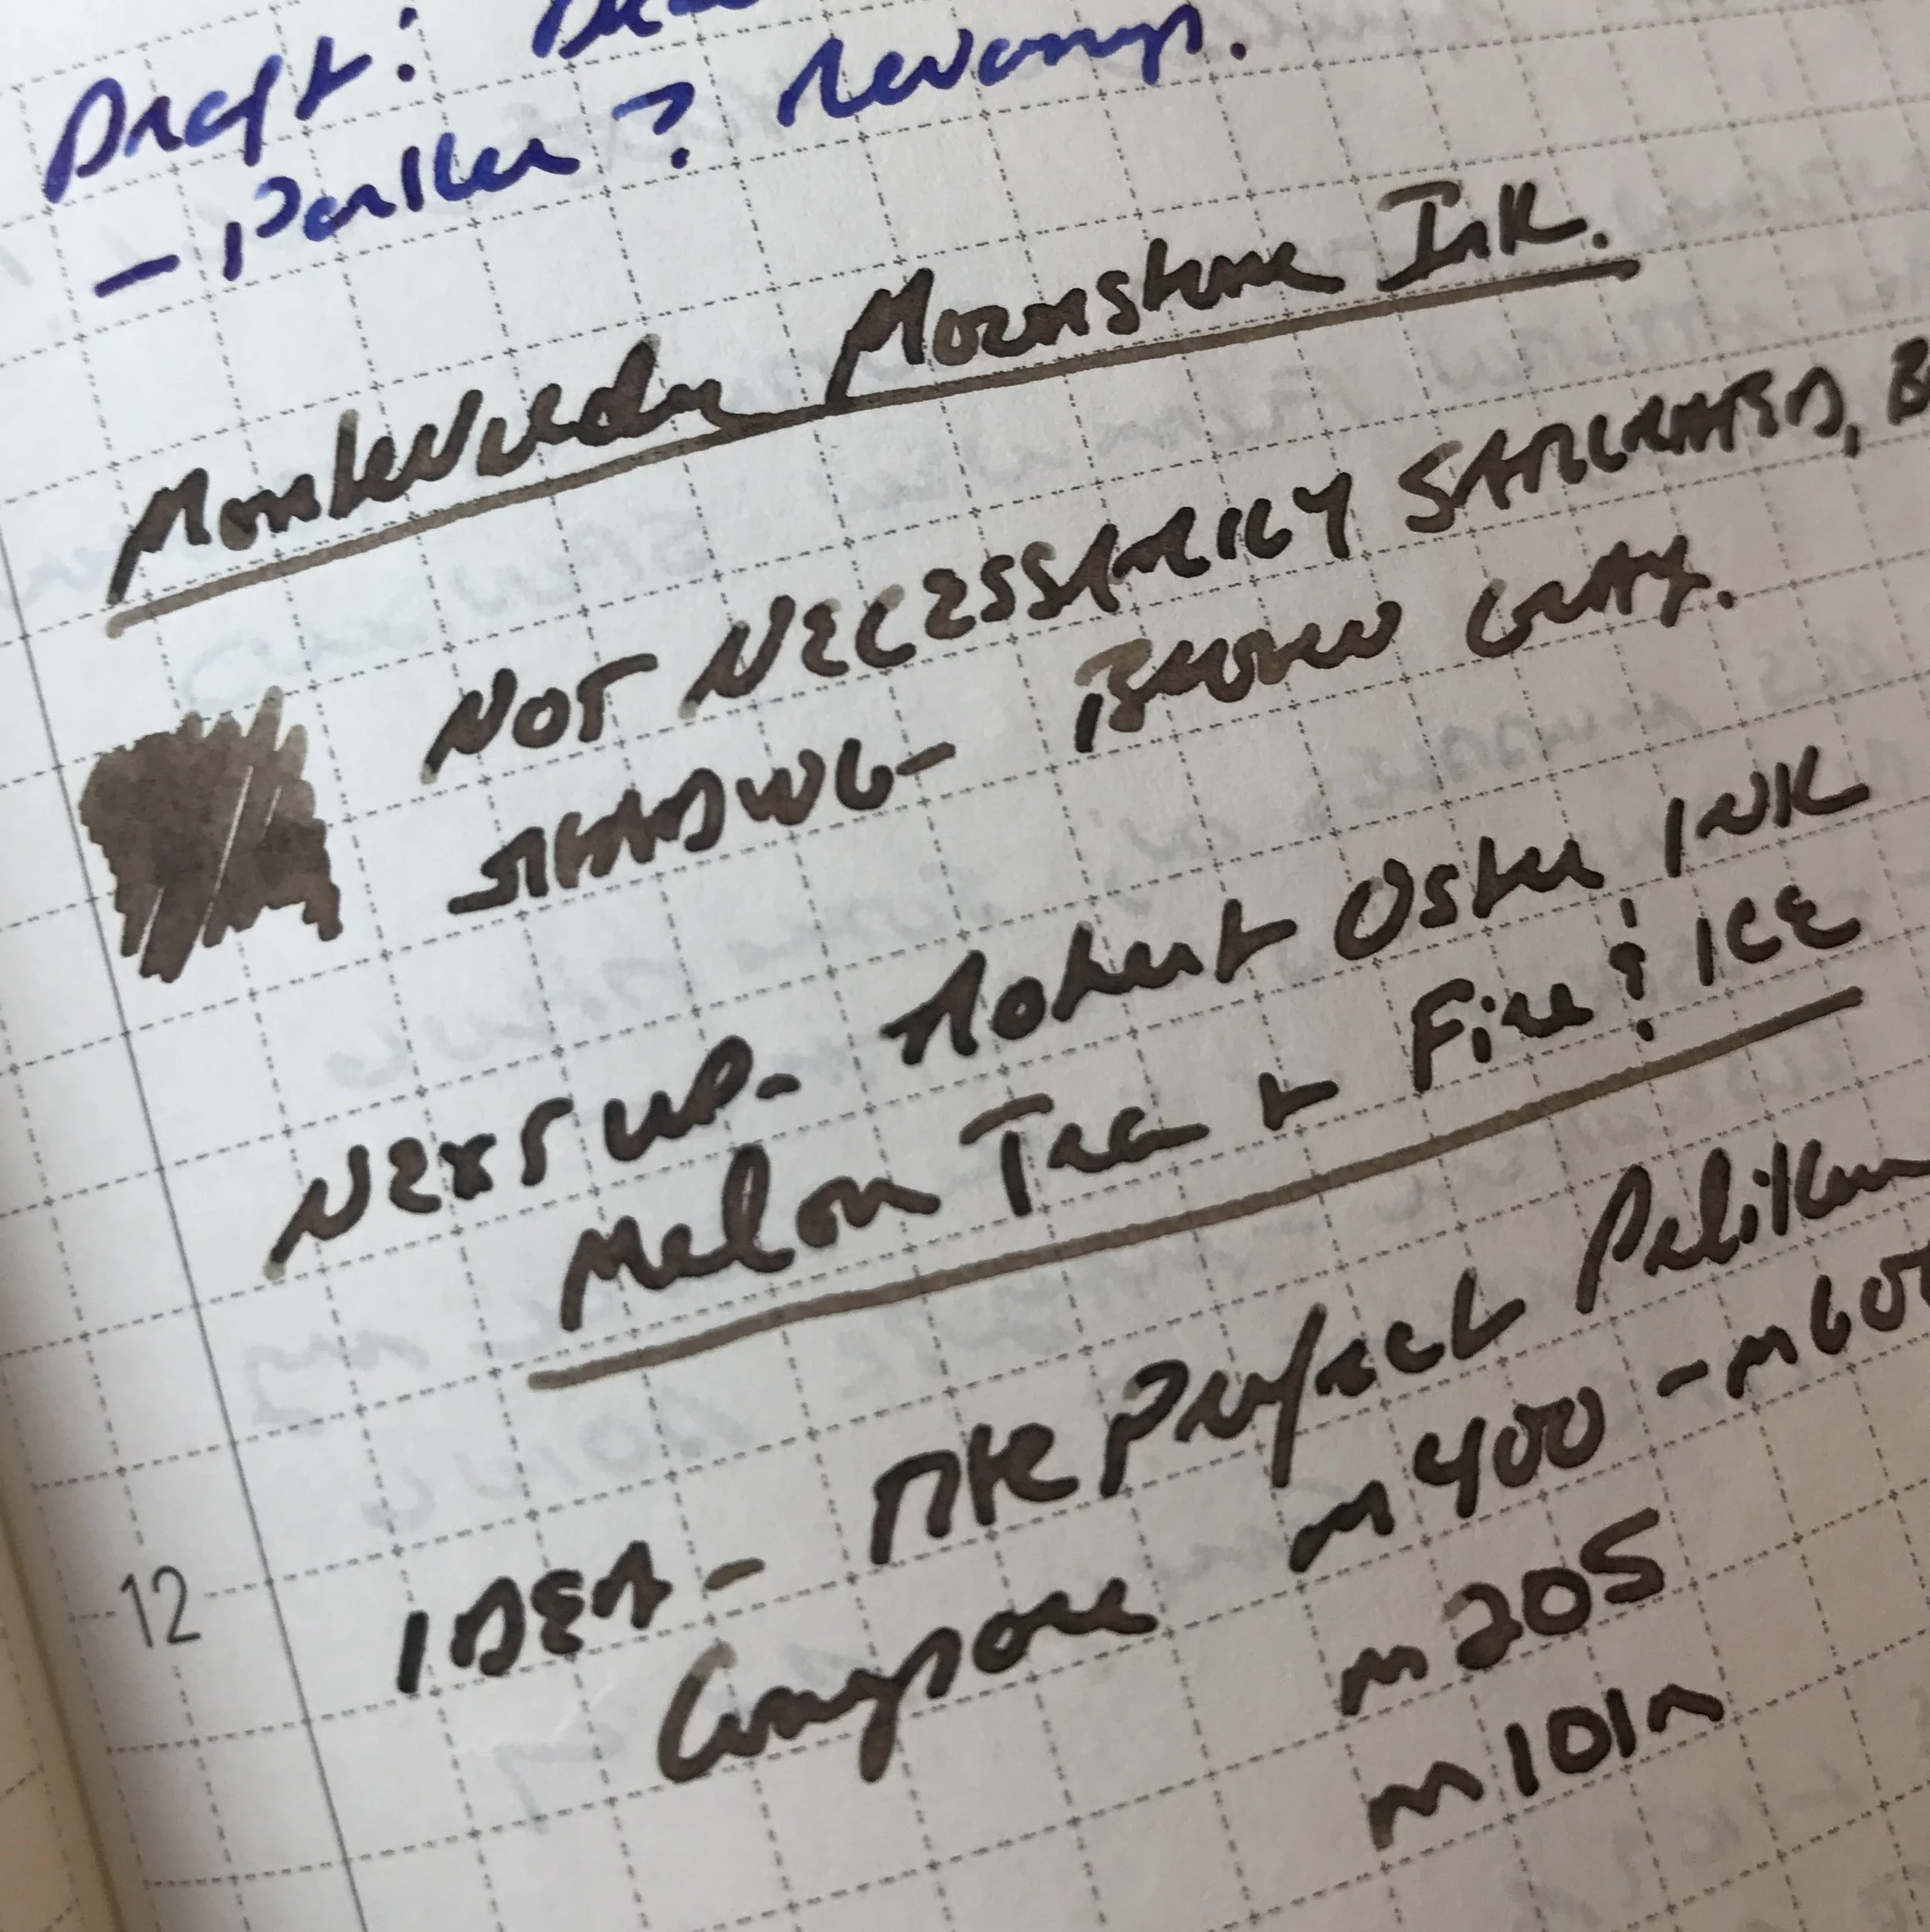 Draft:
- Parker? Revamp.
Monteverde Moonstone Ink.
NOT NECESSARILY SATURATED, B
SHADING - BROWN GRAY.
NEXT UP - Robert Oster INK
Melon Tea + Fire & ICE
12
IDEA - THE Perfect Pelikan
Compare M400 - M600
M205
M101N